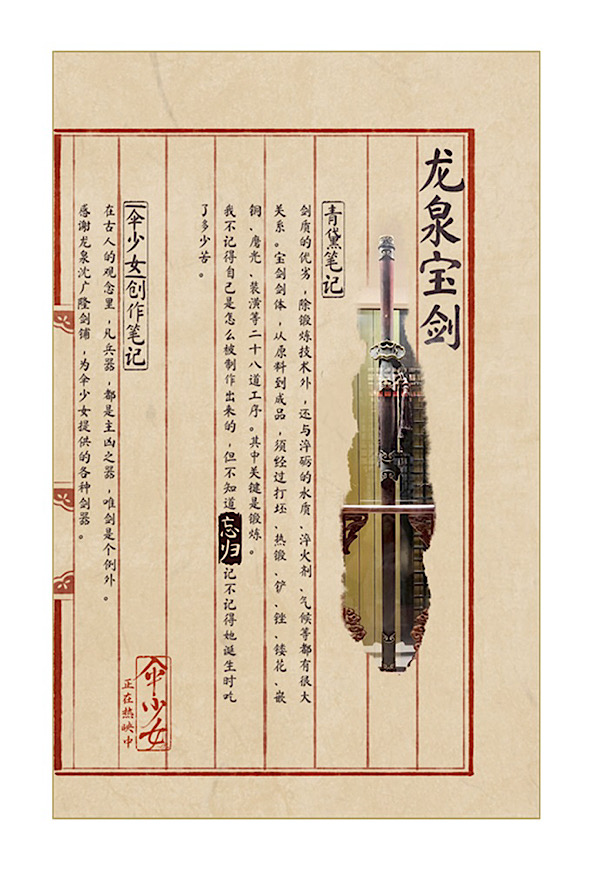 龙泉宝剑
青黛笔记
剑质的优劣，除锻炼技术外，还与淬砺的水质、淬火剂、气候等都有很大
关系。宝剑剑体，从原料到成品，须经过打坯、热锻、铲、锉、镂花、嵌
铜、磨光、装潢等二十八道工序。其中关键是锻炼。
我不记得自己是怎么被制作出来的，但不知道忘归记不记得她诞生时吃
了多少苦。
伞少女创作笔记
在古人的观念里，凡兵器，都是主凶之器，唯剑是个例外。
感谢龙泉沈广隆剑铺，为伞少女提供的各种剑器。
伞少女
正在热映中